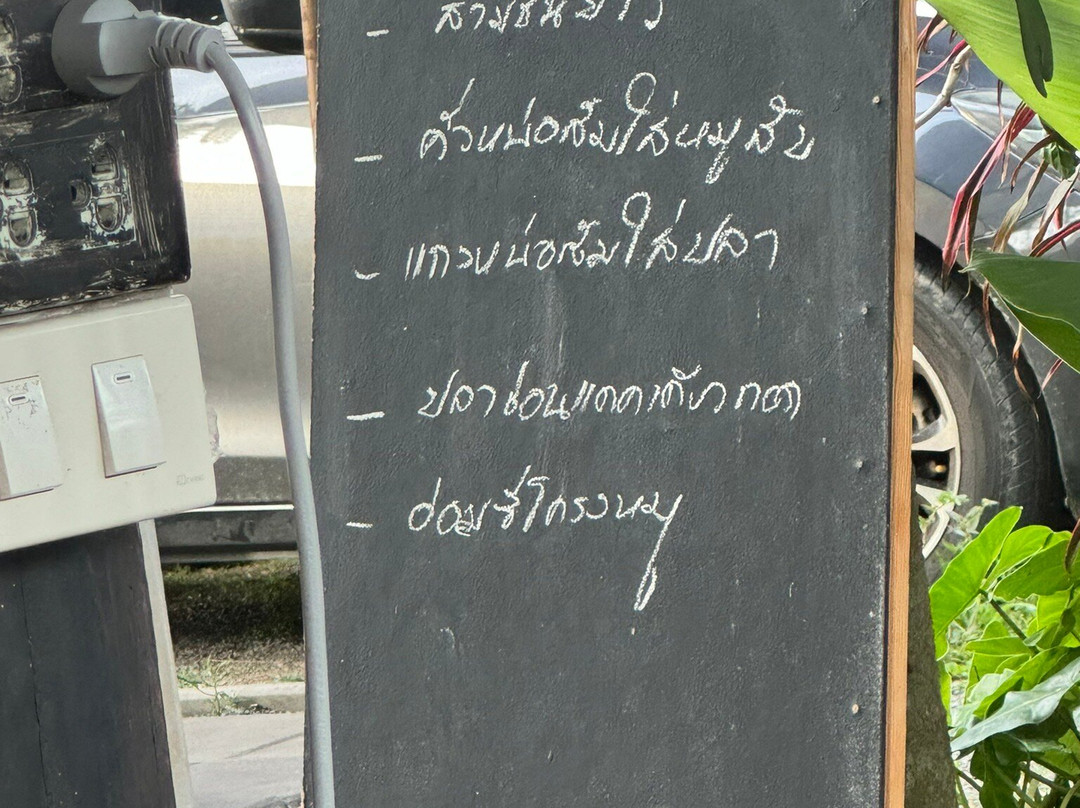 - สามชั้น
- คั่วหน่อส้มใส่หมูสับ
- แกงหน่อส้มใส่ปลา
- ปลาช่อนแดดเดียวทอด
- อ่อมซี่โครงหมู